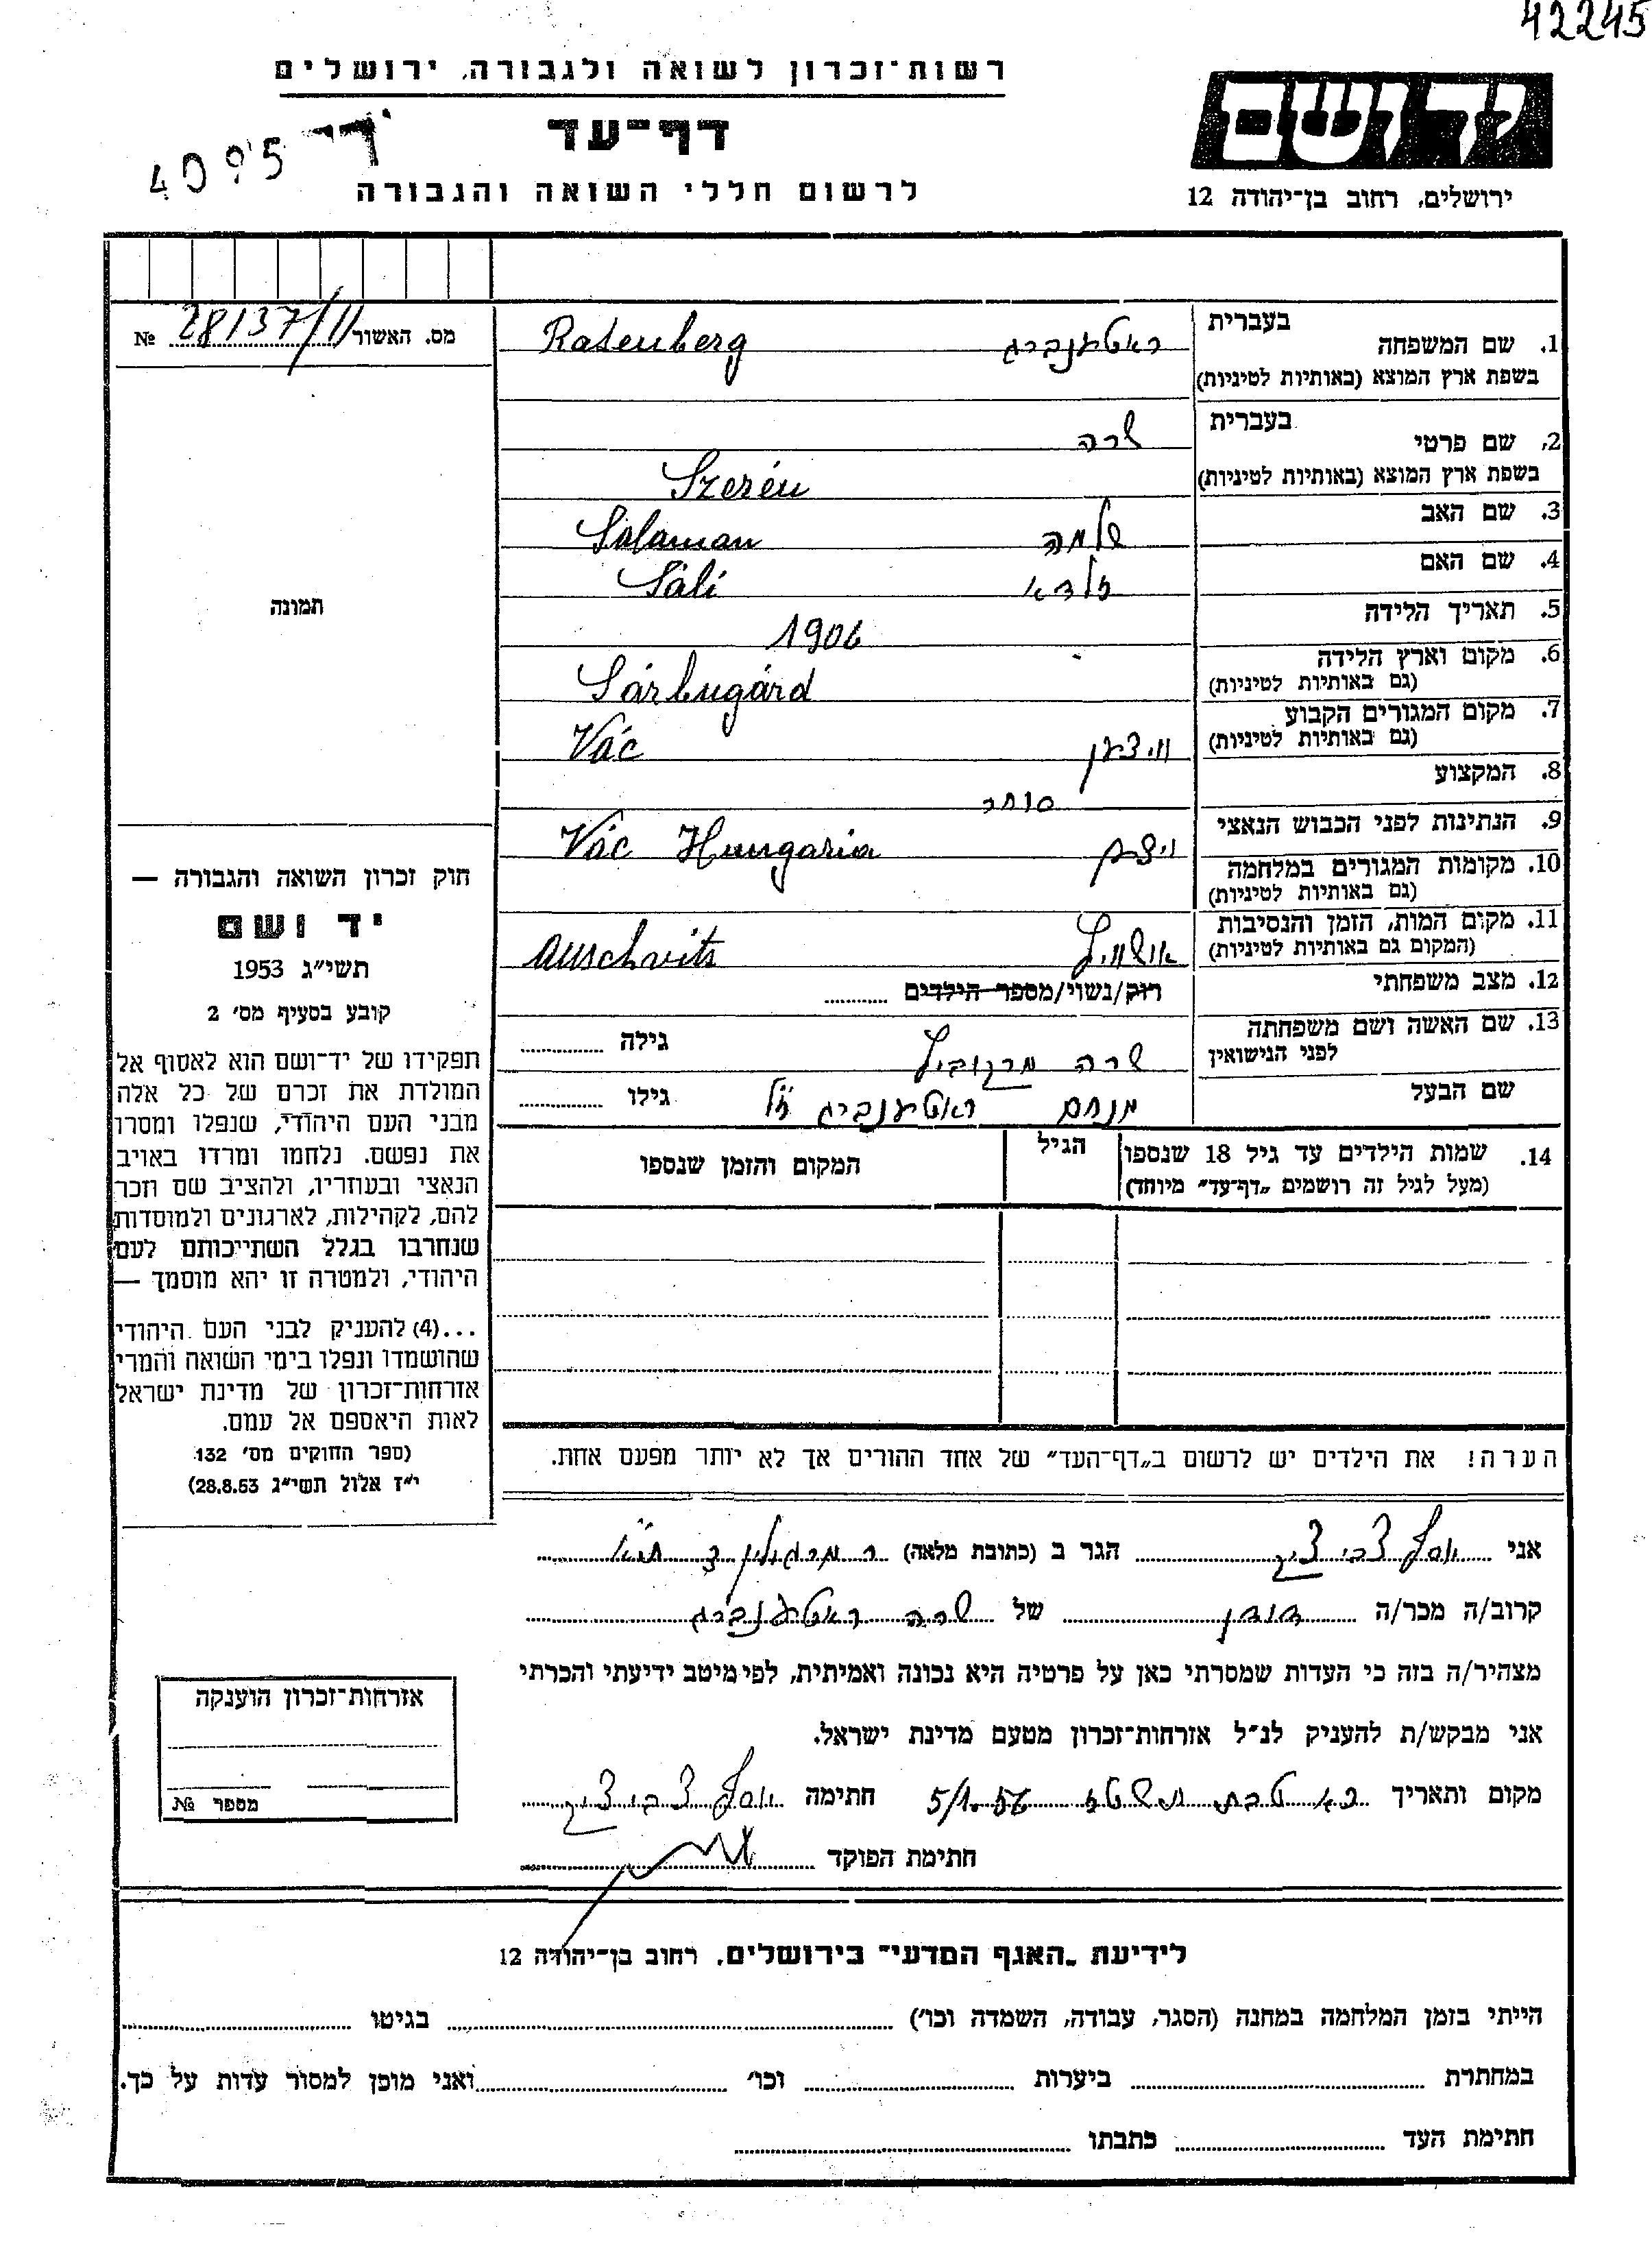 42245
רשות־זכרון לשואה ולגבורה, ירושלים
יד ושם
דף־עד
4095
לרשום חללי השואה והגבורה
ירושלים, רחוב בן־יהודה 12
מס. האשור 28137/11 №
1. שם המשפחה בעברית ראטענברג Ratenberg
בשפת ארץ המוצא (באותיות לטיניות)
2. שם פרטי בעברית שרה
בשפת ארץ המוצא (באותיות לטיניות) Szerén
3. שם האב שלמה Salaman
4. שם האם זלדא Sáli
5. תאריך הלידה 1906
6. מקום וארץ הלידה
(גם באותיות לטיניות) Sárbugárd
7. מקום המגורים הקבוע
(גם באותיות לטיניות) וויצען Vác
8. המקצוע סוחר
9. הנתינות לפני הכבוש הנאצי Vác Hungaria
10. מקומות המגורים במלחמה
(גם באותיות לטיניות)
11. מקום המות, הזמן והנסיבות
(המקום גם באותיות לטיניות) אושוויץ Auschvits
12. מצב משפחתי רוק/נשוי/מספר הילדים
13. שם האשה ושם משפחתה
לפני הנישואין שרה מרקוביץ גילה
שם הבעל מנחם ראטענברג ז"ל גילו
14. שמות הילדים עד גיל 18 שנספו
(מעל לגיל זה רושמים „דף־עד” מיוחד)
הגיל
המקום והזמן שנספו
הערה! את הילדים יש לרשום ב„דף־העד” של אחד ההורים אך לא יותר מפעם אחת.
תמונה
חוק זכרון השואה והגבורה —
יד ושם
תשי״ג 1953
קובע בסעיף מס׳ 2
תפקידו של יד־ושם הוא לאסוף אל
המולדת את זכרם של כל אלה
מבני העם היהודי, שנפלו ומסרו
את נפשם, נלחמו ומרדו באויב
הנאצי ובעוזריו, ולהציב שם וזכר
להם, לקהילות, לארגונים ולמוסדות
שנחרבו בגלל השתייכותם לעם
היהודי, ולמטרה זו יהא מוסמך —
...(4) להעניק לבני העם היהודי
שהושמדו ונפלו בימי השואה והמרי
אזרחות־זכרון של מדינת ישראל
לאות היאספם אל עמם.
(ספר החוקים מס׳ 132
י״ז אלול תשי״ג 28.8.53)
אני יוסף צבי הגר ב (כתובת מלאה) ר מרגולין ת"א
קרוב/ה מכר/ה דודן של שרה ראטענברג
מצהיר/ה בזה כי העדות שמסרתי כאן על פרטיה היא נכונה ואמיתית, לפי מיטב ידיעתי והכרתי
אני מבקש/ת להעניק לנ״ל אזרחות־זכרון מטעם מדינת ישראל.
מקום ותאריך כא טבת תשטז 5/1.56 חתימה יוסף צבי
חתימת הפוקד
אזרחות־זכרון הוענקה
מספר №
לידיעת „האגף המדעי” בירושלים, רחוב בן־יהודה 12
הייתי בזמן המלחמה במחנה (הסגר, עבודה, השמדה וכו׳) בגיטו
במחתרת ביערות וכו׳ ואני מוכן למסור עדות על כך.
חתימת העד כתבתו